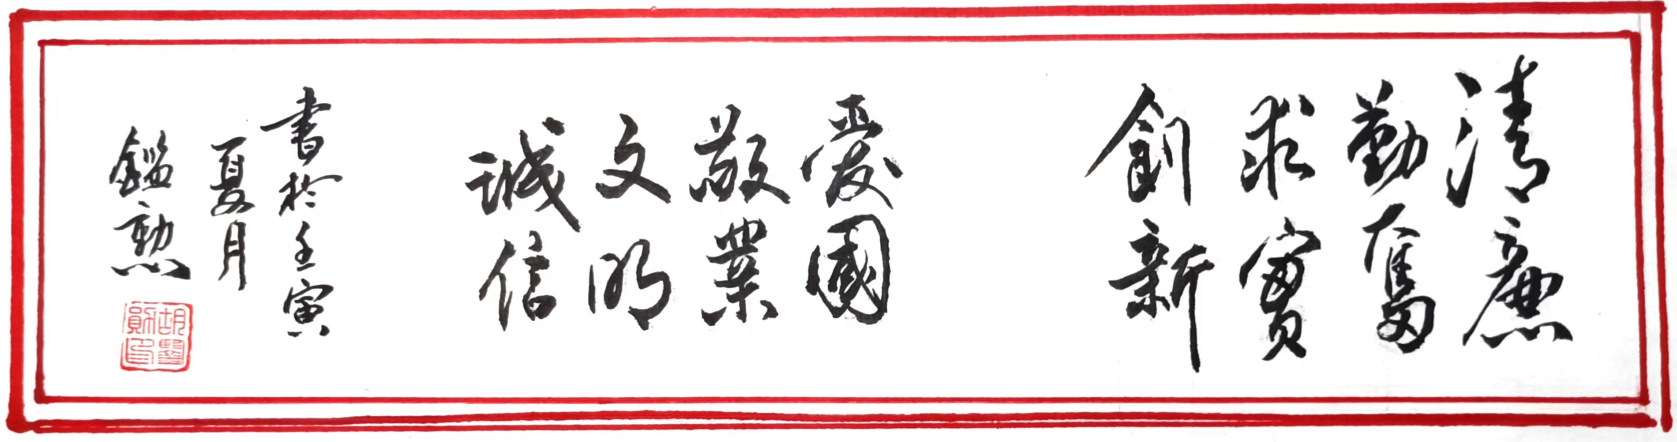 清廉
勤奮
求實
創新
愛國
敬業
文明
誠信
書於壬寅
夏月
鑑勲
胡鑑
勛印